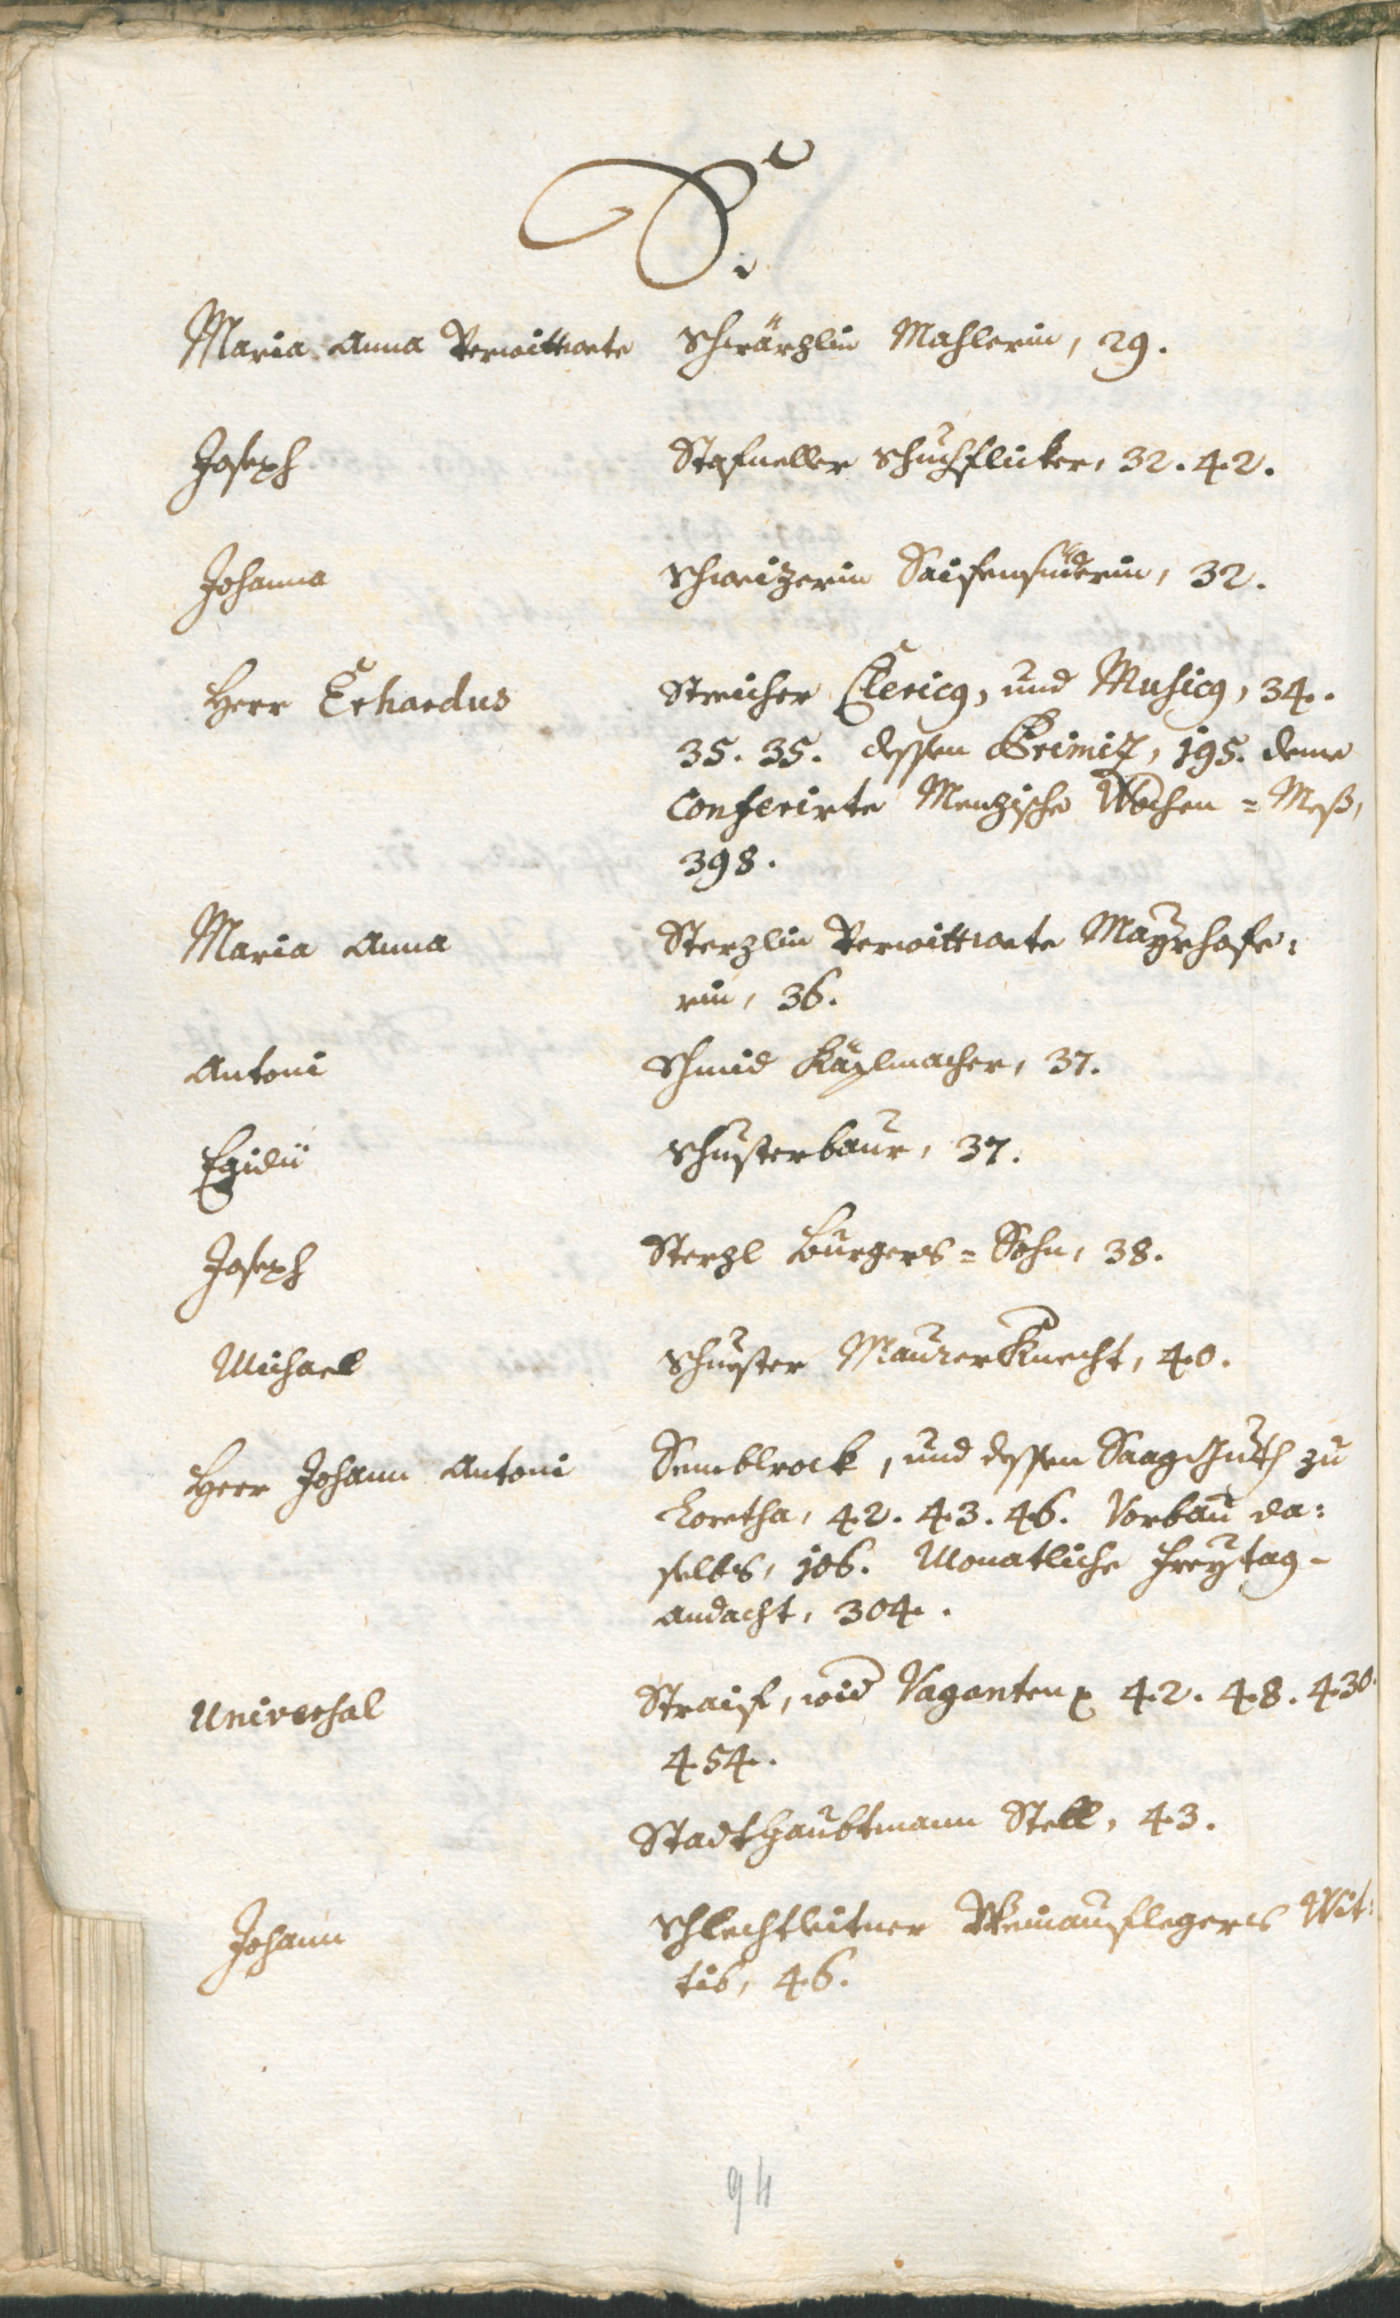 S.
Maria Anna Verwittwete Schwärzlin Mahlerin, 29.
Joseph Stafneller Schuchflicker, 32. 42.
Johanna Schweizerin Saifensiederin, 32.
Herr Erhardus Streicher Clericus, und Musicus, 34.
35. 35. dessen Primiz, 195. deme
Conferirte Menzische Wochen = Meß,
398.
Maria Anna Sterzlin Verwittwete Mayrhofe:
rin, 36.
Antoni Schmid Käzlmacher, 37.
Egidii Schusterbaur, 37.
Joseph Sterzl Burgers = Sohn, 38.
Michael Schuster Maurer Knecht, 40.
Herr Johann Antoni Semblrock, und dessen Saag Guth zu
Loretha, 42. 43. 46. Vorbau da:
selbs, 106. Monatliche Freytag-
andacht, 304.
Universal Straif, wid Vaganten 42. 48. 430.
454.
Stadthaubtmann Stell, 43.
Johann Schlechtleitner Weinauflegers Wit:
tib, 46.
94